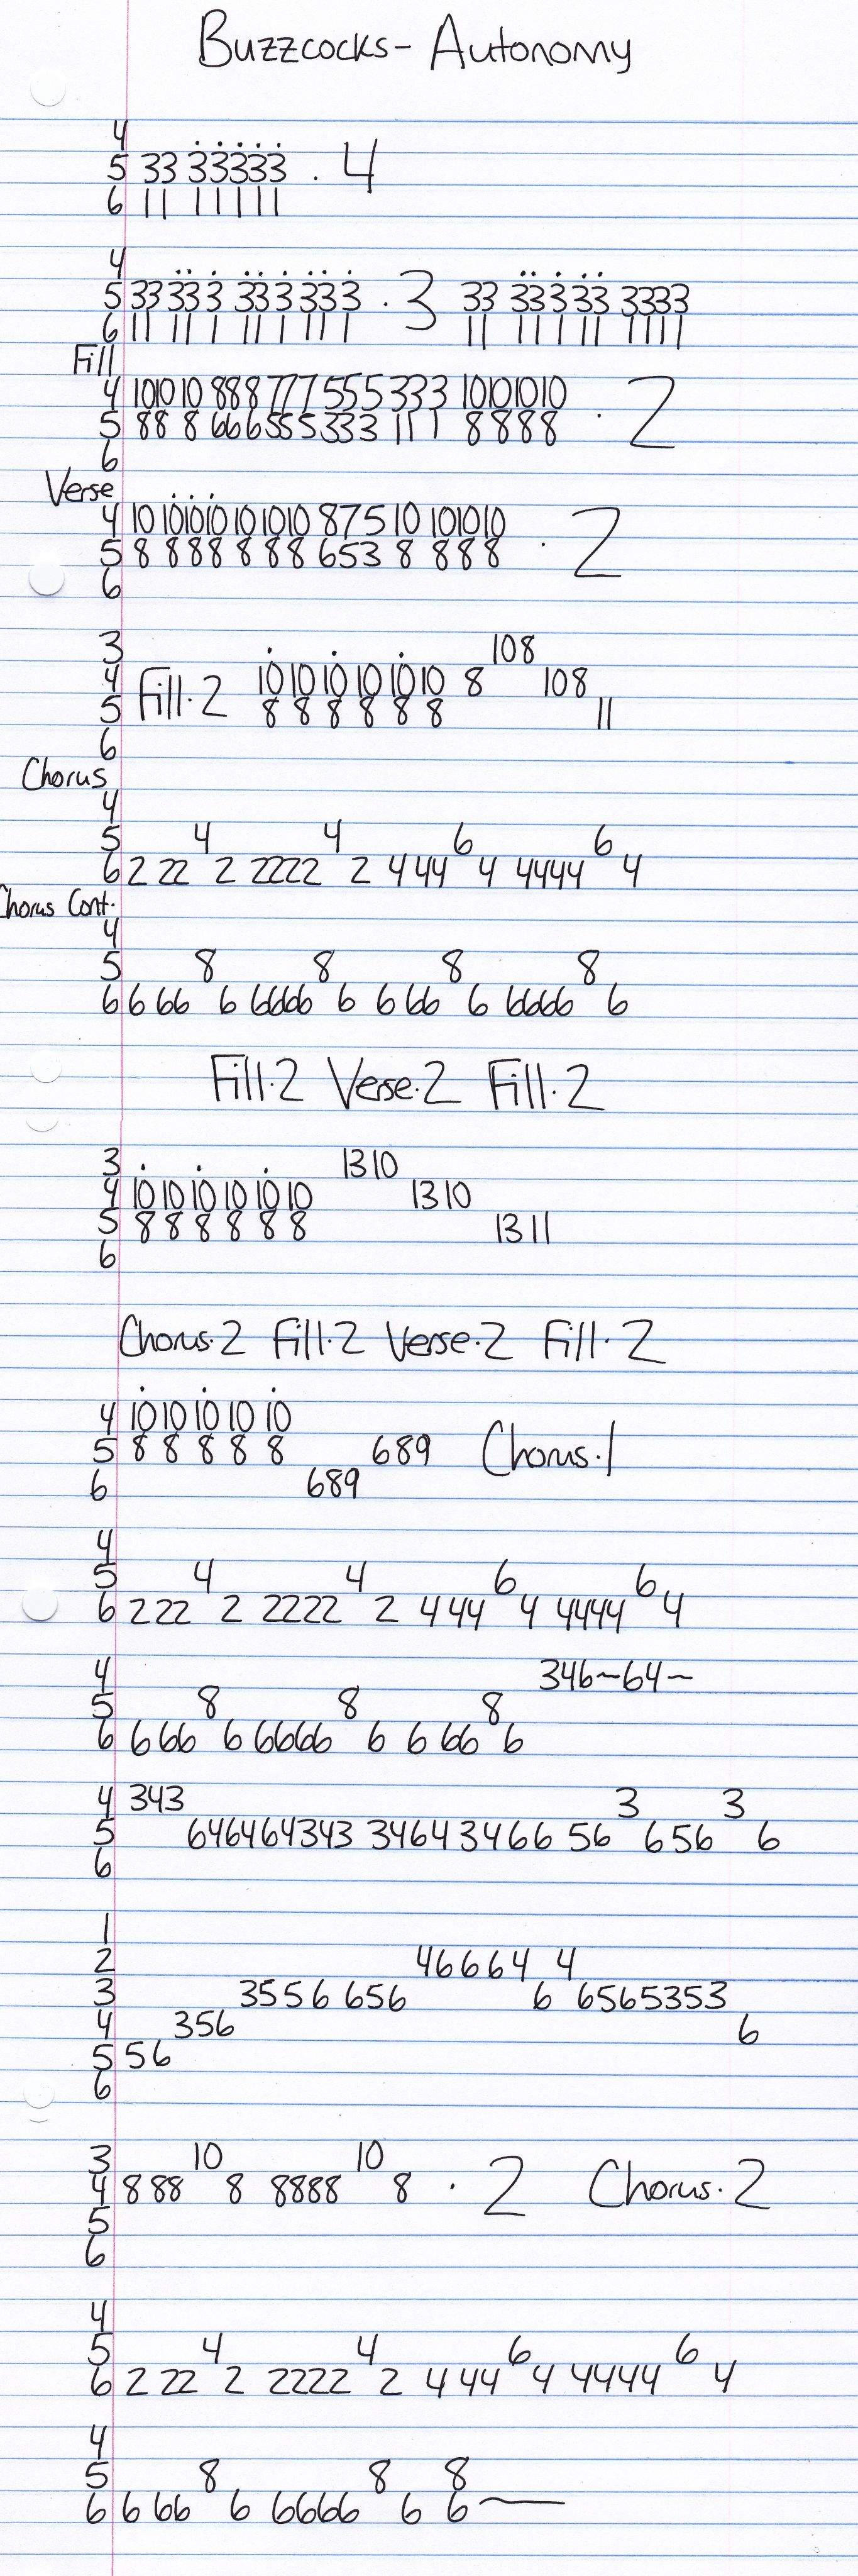 Buzzcocks - Autonomy
4
5 33 33333 . 4
6 11 11111
4
5 33 33 3 33 3 33 3 . 3 33 33 3 33 3333
6 11 11 1 11 1 11 1 11 11 1 11 1111
Fill
4 1010 10 888 777 555 333 10101010 . 2
5 88 8 666 555 333 11 1 8888
6
Verse
4 10 101010 10 1010 875 10 101010 . 2
5 8 888 8 88 653 8 888
6
3 108
4 Fill·2 10 10 10 10 10 10 8 108
5 8 8 8 8 8 8 11
6
Chorus
4
5 4 4 6 6
6 2 22 2 2222 2 4 44 4 4444 4
Chorus Cont.
4
5 8 8 8 8
6 6 66 6 6666 6 6 66 6 6666 6
Fill·2 Verse·2 Fill·2
3 1310
4 10 10 10 10 10 10 1310
5 8 8 8 8 8 8 1311
6
Chorus·2 Fill·2 Verse·2 Fill·2
4 10 10 10 10 10
5 8 8 8 8 8 689 Chorus·1
6 689
4
5 4 4 6 6
6 2 22 2 2222 2 4 44 4 4444 4
4 346~64~
5 8 8 8
6 6 66 6 6666 6 6 66 6
4 343 3 3
5 646464343 34643466 56 656 6
6
1
2 46664 4
3 3556 656 6 6565353
4 356 6
5 56
6
3 10 10
4 8 88 8 8888 8 . 2 Chorus·2
5
6
4
5 4 4 6 6
6 2 22 2 2222 2 4 44 4 4444 4
4
5 8 8 8
6 6 66 6 6666 6 6